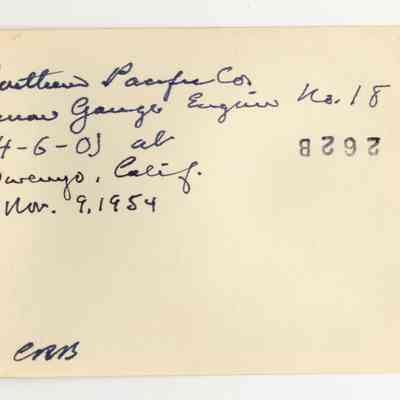 outhern Pacific Co.
rrow Gauge Engine No. 18
4-6-0) at
Owenyo, Calif.
Nov. 9, 1954
2628